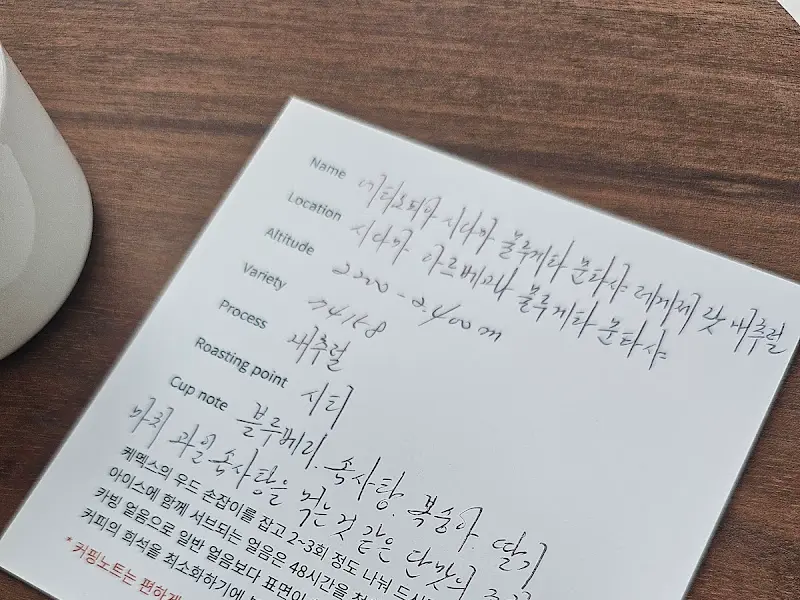 Name 에티오피아 시다마 블루게타 분타샤 레게제 랏 내추럴
Location 시다마 아르베고나 블루게타 분타샤
Altitude 2200 - 2400 m
Variety 74158
Process 내추럴
Roasting point 시티
Cup note 블루베리, 솜사탕, 복숭아, 딸기
마치 과일 솜사탕을 먹는 것 같은 단맛의
케멕스의 우드 손잡이를 잡고 2~3회 정도 나눠
아이스에 함께 서브되는 얼음은 48시간을
카빙 얼음으로 일반 얼음보다 표면이
커피의 희석을 최소화하기에
* 커핑노트는 편하게